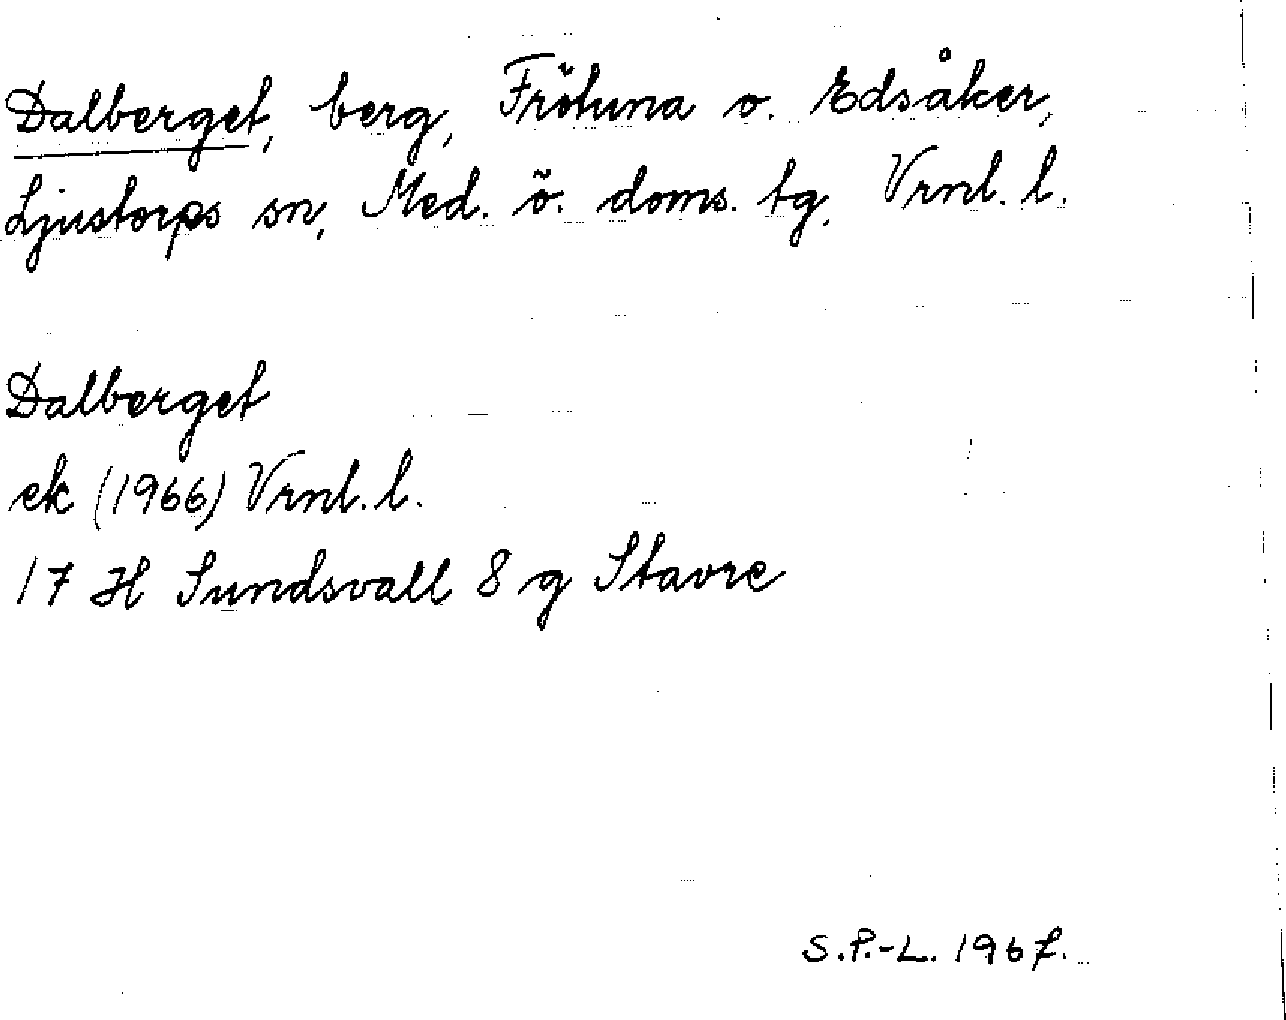 Dalberget, berg, Frötuna o. Edsåker,
Ljustorps sn, Med. ö. doms. tg. Vrnl. l.
Dalberget
ek (1966) Vrnl. l.
17 H Sundsvall 8 g Stavre
S.P.-L. 1967.